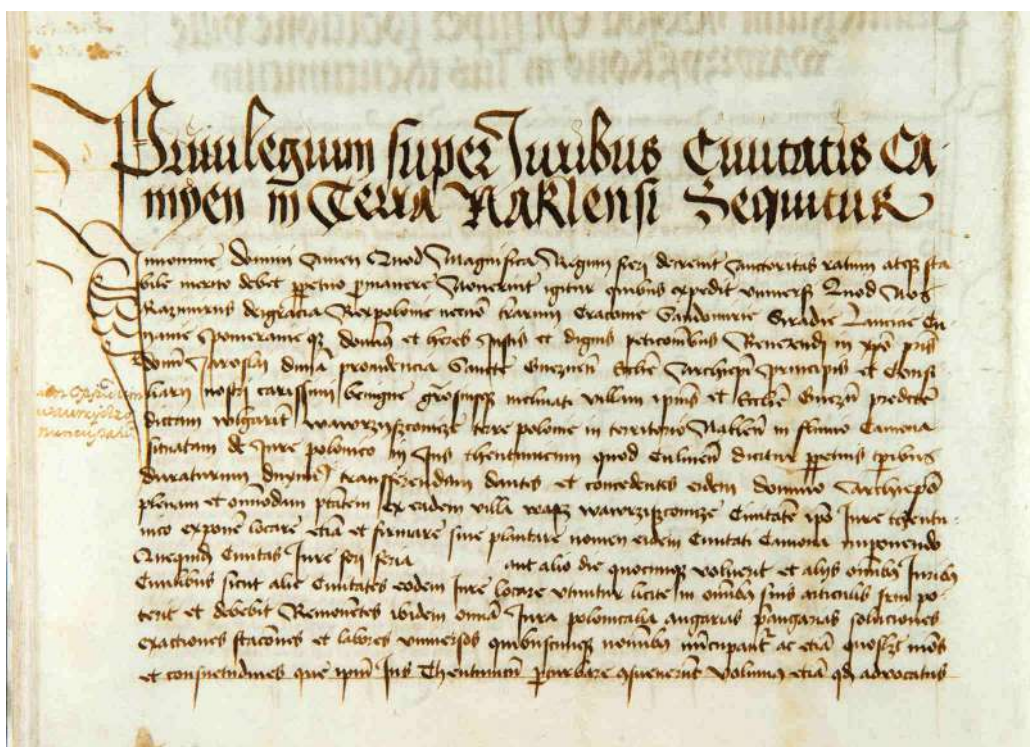 Priuilegium super Juribus Ciuitatis Ca
myen in Terra Naklensi Sequitur
In nomine domini Amen Quod Magnifica Regum fieri decreuit Auctoritas ratum atque sta
bile merito debet perpetuo permanere Nouerint igitur quibus expedit vniuersi Quod Nos
Kazimirus dei gracia Rex polonie necnon terrarum Cracouie Sandomirie Siradie Lancicie Cu
yauie Pomeranieque dominus et heres Justis et dignis peticionibus Reuerendi in xpo pris
domini Jaroslai diuina prouidencia Sancte Gneznen Ecclie Archiepi Principis et Consi
liarij nostri carissimi benigne inclinati villam ipsius et Ecclie Gneznen predicte
dictam wlgariter terre polonie in territorio Naklen in fluuio Camona
situatam de Jure polonico in Jus theutunicum quod Culmen dicitur perpetuis temporibus
duraturum duximus transferendam dantes et concedentes eidem domino Archiepo
plenam et omnimodam ptatem Ex eadem villa Ciuitatem ipso Jure theutu
nico exponere locare etiam et firmare siue plantare nomen eidem Ciuitati Camona imponendo
Ciuitas Jure fori feria aut alio die quocunque voluerit et alijs omnibus Juribus
Ciuilibus sicut alie Ciuitates eodem Jure locate vtuntur licite in omnibus suis articulis frui po
terit et debebit Remouentes ibidem omnia Jura polonicalia angarias perangarias soluciones
exactiones stacones et labores vniuersos quibuscunque nominibus nuncupantur ac etiam quoslibet
et consuetudines que ipsum Jus Theutunicum perturbare consueuerunt Volumus etiam quod aduocatus